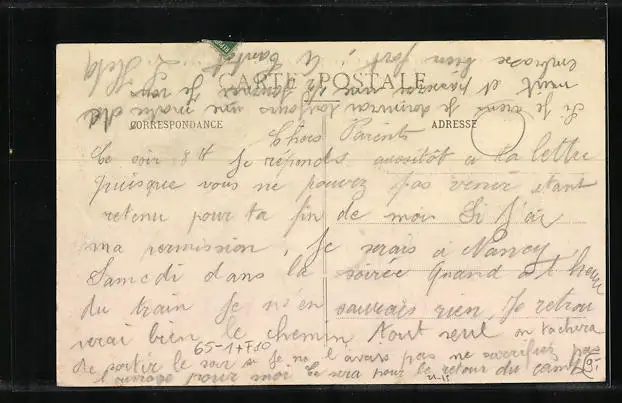 CARTE POSTALE
CORRESPONDANCE
ADRESSE
Chers Parents
Ce soir 8 H Je réponds aussitôt a ta lettre
puisque vous ne pouvez pas venir etant
retenu pour ta fin de mois Si j'ai
ma permission, Je serais à Nancy
Samedi dans la soirée Quand a l'heure
du train Je n'en saurais rien, Je retrou
verai bien le chemin tout seul on tachera
de sortir le soir si Je ne l'avais pas ne sacrifiez pas
l'ouvrage pour moi Ce sera pour le retour du camp
65-1+F10
Si Je viens Je donnerai toujours une
nuit et Je vous
embrasse bien fort